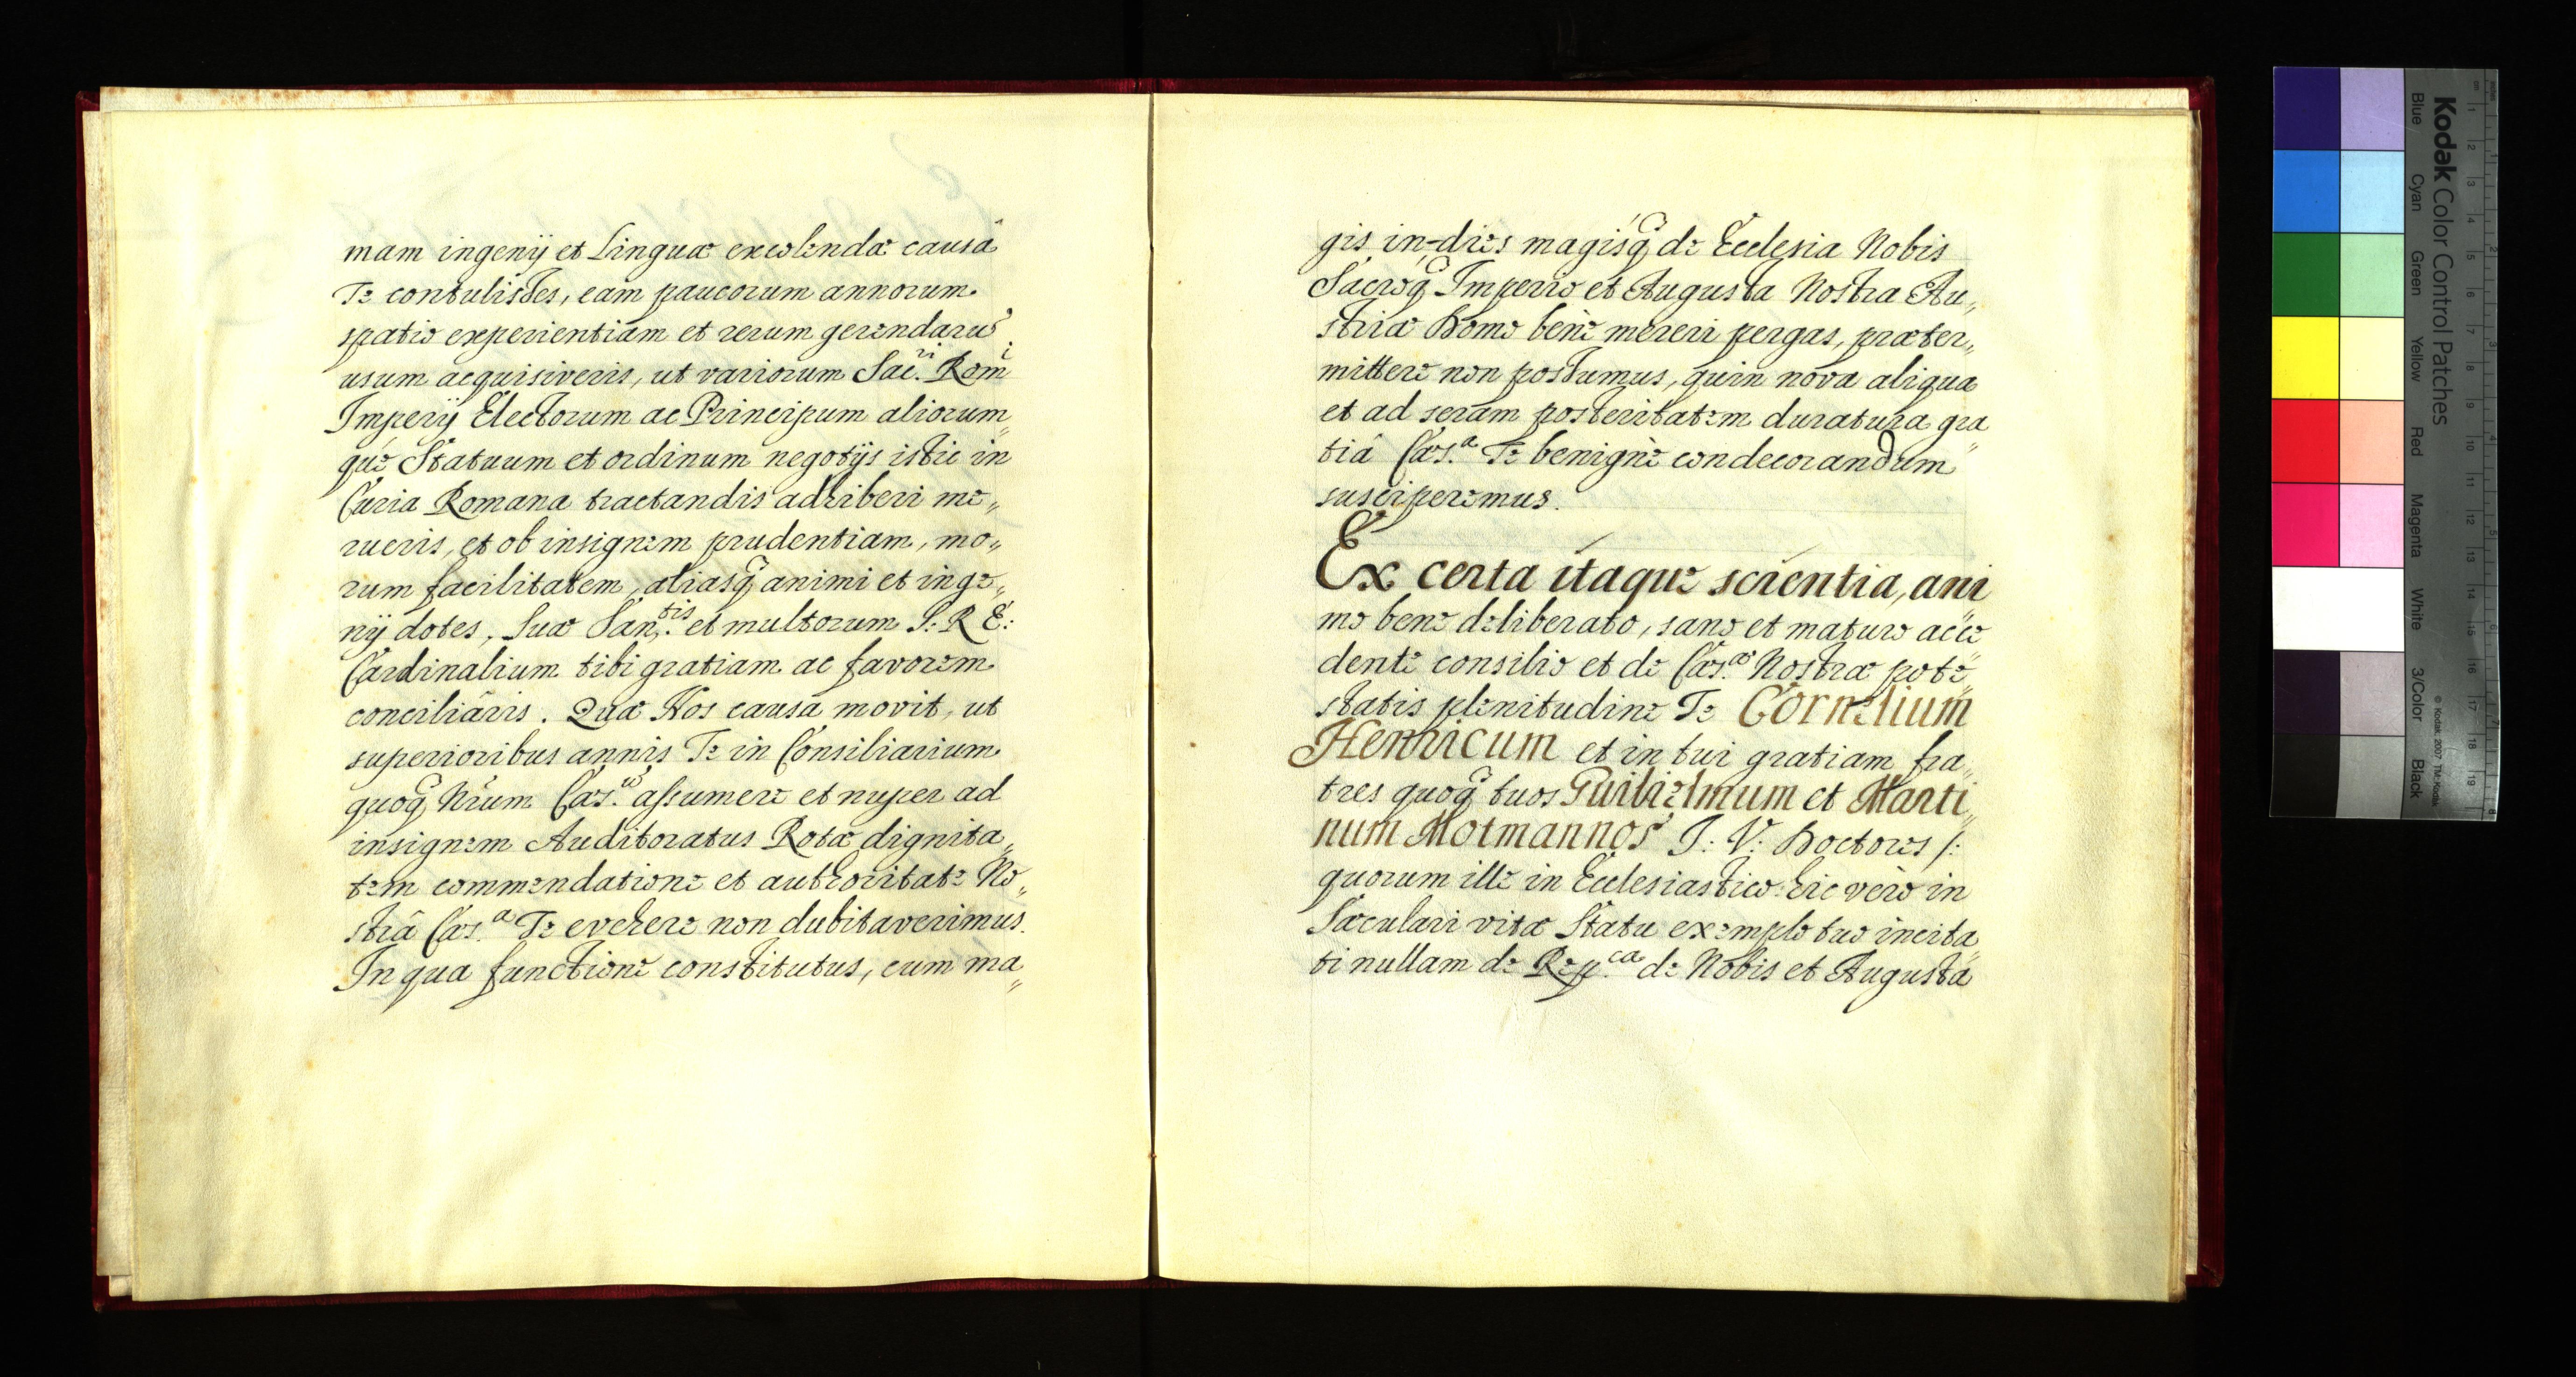 mam ingenij et Linguæ excolendæ causâ
Te contulisses, eam paucorum annorum
spatio experientiam et rerum gerendarū
usum acquisiveris, ut variorum Sac.ri Rom.i
Imperij Electorum ac Principum aliorum„
que Statuum et ordinum negotijs istic in
Curia Romana tractandis adhiberi me„
rueris, et ob insignem prudentiam, mo„
rum facilitatem, aliasq animi et inge„
nij dotes, Suæ San.tis et multorum S: R E:
Cardinalium tibi gratiam ac favorem
conciliâris. Quæ Nos causa movit, ut
superioribus annis Te in Consiliarium
quoq Nrum Cæs.u assumere et nuper ad
insignem Auditoratus Rotæ dignita„
tem commendatione et authoritate No„
strâ Cæs.a Te evehere non dubitaverimus.
In qua functione constitutus, cum ma„
gis in-dies magisq de Ecclesia Nobis
Sacroq Imperio et Augusta Nostra Au„
striæ Domo bene mereri pergas, præter„
mittere non possumus, quin nova aliqua
et ad seram posteritatem duratura gra„
tiâ Cæs.a Te benignè condecorandum
susciperemus.
Ex certa itaque scientia, ani„
mo bene deliberato, sano et maturo acce„
dente consilio et de Cæs.æ Nostræ pote„
statis plenitudine Te Cornelium
Henricum et in tui gratiam fra„
tres quoq tuos Guilielmum et Marti„
num Motmannos J: V: Doctores /:
quorum ille in Ecclesiastico hic verò in
Sæculari vitæ Statu exemplo tuo incita„
ti nullam de Rep.ca de Nobis et Augusta
Kodak Color Control Patches
Blue Cyan Green Yellow Red Magenta White 3/Color Black
© Kodak, 2007 TM: Kodak